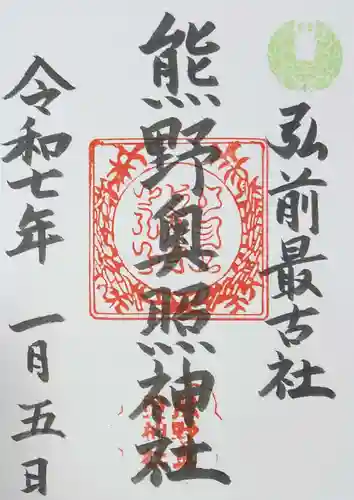 弘前最古社
熊野奥照神社
令和七年
一月五日